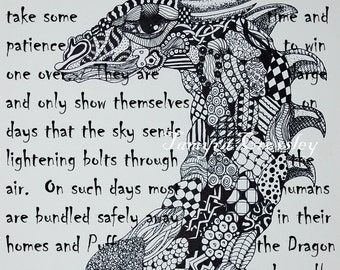 take some time and
patience to win
one over. They are large
and only show themselves on
days that the sky sends
lightening bolts through the
air. On such days most humans
are bundled safely away in their
homes and Puff the Dragon